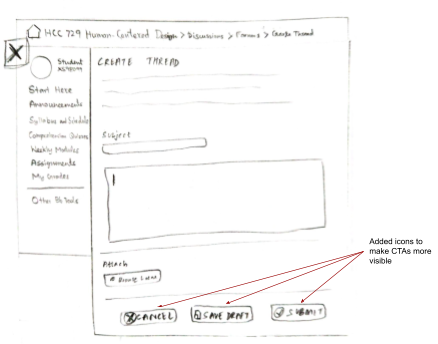 HCC 729 Human-Centered Design > Discussions > Forums > Create Thread
X
Student
CREATE THREAD
Start Here
Announcements
Syllabus and Schedule
Comprehension Quizzes
Weekly Modules
Assignments
My Grades
Other Bb Tools
Subject
Attach
Browse Local
CANCEL
SAVE DRAFT
SUBMIT
Added icons to
make CTAs more
visible